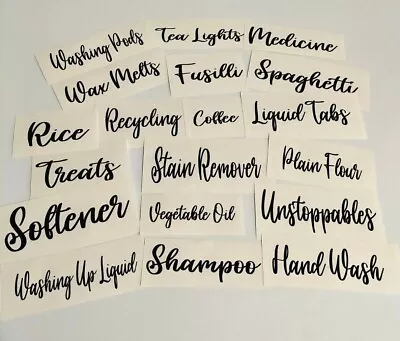 Washing Pods
Tea Lights
Medicine
Wax Melts
Fusilli
Spaghetti
Rice
Recycling
Coffee
Liquid Tabs
Treats
Stain Remover
Plain Flour
Softener
Vegetable Oil
Unstoppables
Washing Up Liquid
Shampoo
Hand Wash